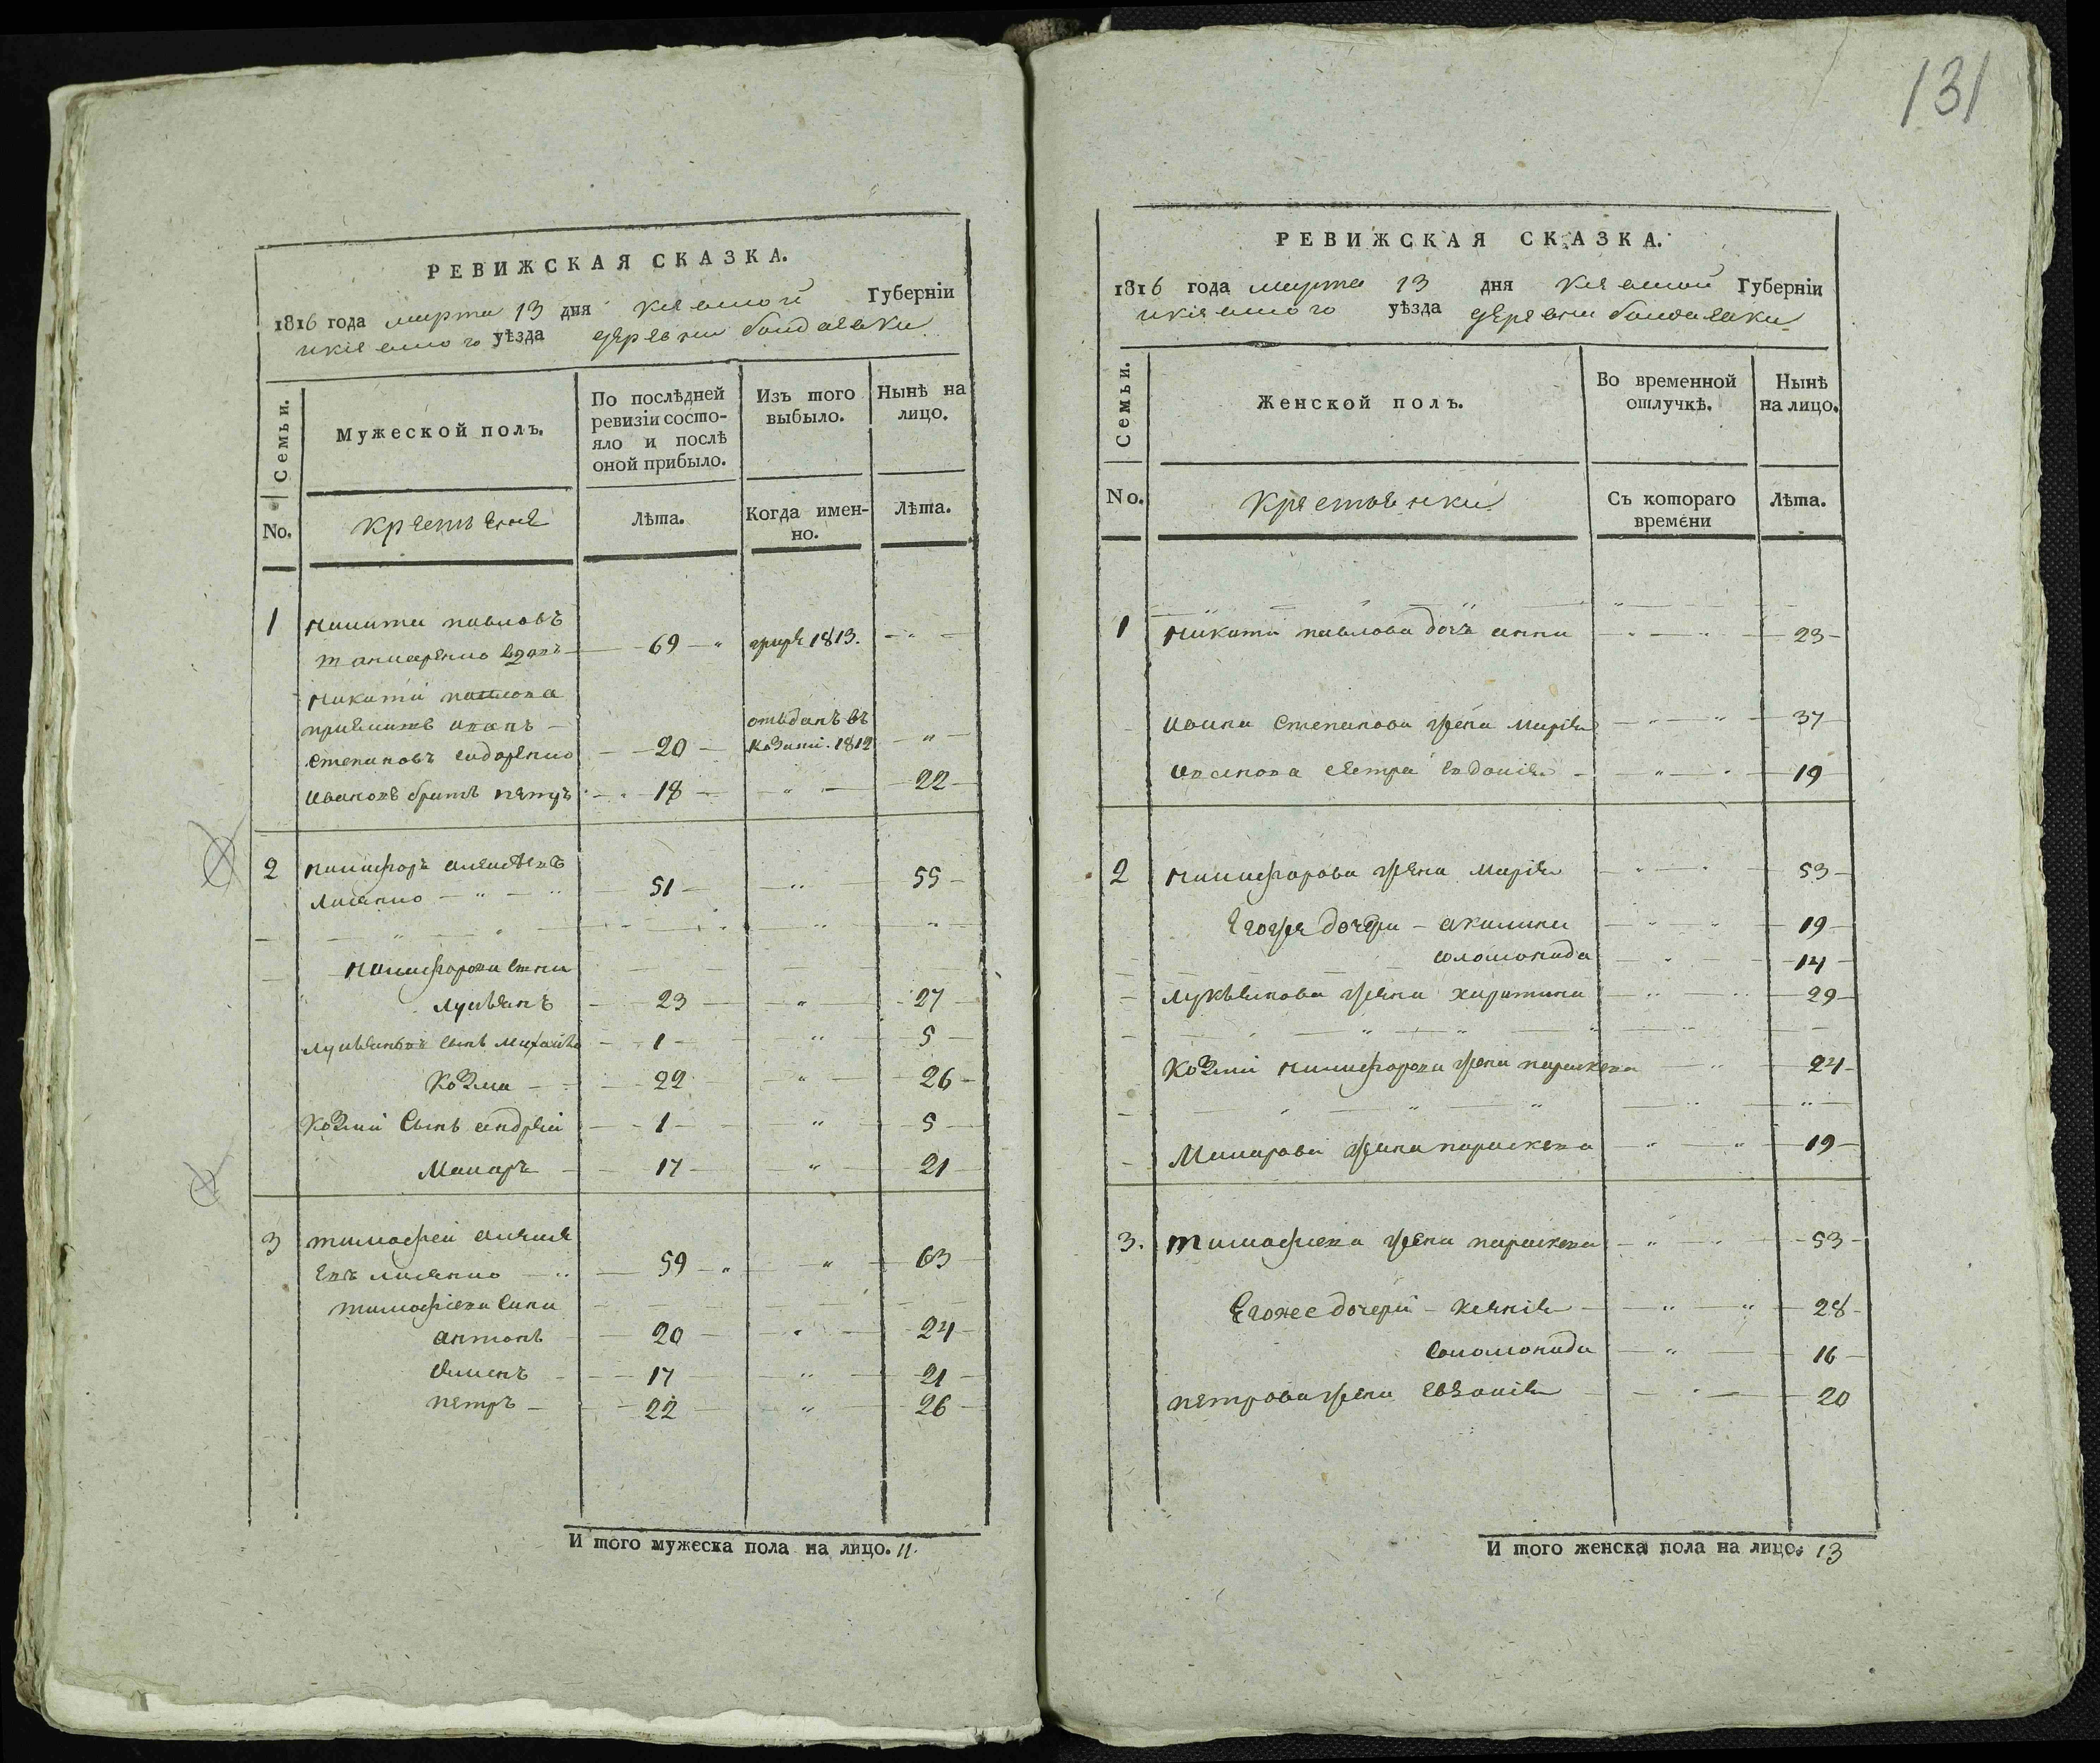 РЕВИЖСКАЯ СКАЗКА.
1816 года марта 13 дня Киевской Губернїи
уѣзда деревни
Семьи.
Мужеской полъ.
По послѣдней
ревизїи состо-
яло и послѣ
оной прибыло.
Изъ того
выбыло.
Нынѣ на
лицо.
No.
крестьяне
Лѣта.
Когда имен-
но.
Лѣта.
1 никита павловъ
69 умре 1813.
никити павлова
приемишъ иванъ
отъданъ въ
степановъ сидоренко 20 козаки. 1812
ивановъ братъ петръ 18 22
2 никифоръ алексѣевъ
лисенко 51 55
никифорова сини
лукьянъ 23 27
лукьяновъ сынъ михайло 1 5
козма 22 26
козми сынъ андрей 1 5
макаръ 17 21
3 тимофей алексе
евъ лисенко 59 63
тимофіева сини
антонъ 20 24
семенъ 17 21
петръ 22 26
И того мужеска пола на лицо. 11.
131
РЕВИЖСКАЯ СКАЗКА.
1816 года марта 13 дня Киевской Губернїи
уѣзда деревни
Семьи.
Женской полъ.
Во временной
отлучкѣ.
Нынѣ
на лицо.
No.
крестьянки
Съ котораго
времени
Лѣта.
1 никити павлова дочь анна 23
ивана степанова жена марія 37
иванова сестра евдокія 19
2 никифорова жена марія 53
егожъ дочери акилина 19
соломонида 14
лукьянова жена харитина 29
козми никифорова жена параскева 24
макарова жена параскева 19
3. тимофіева жена параскева 53
егоже дочери ксенія 28
соломонида 16
петрова жена 20
И того женска пола на лицо. 13